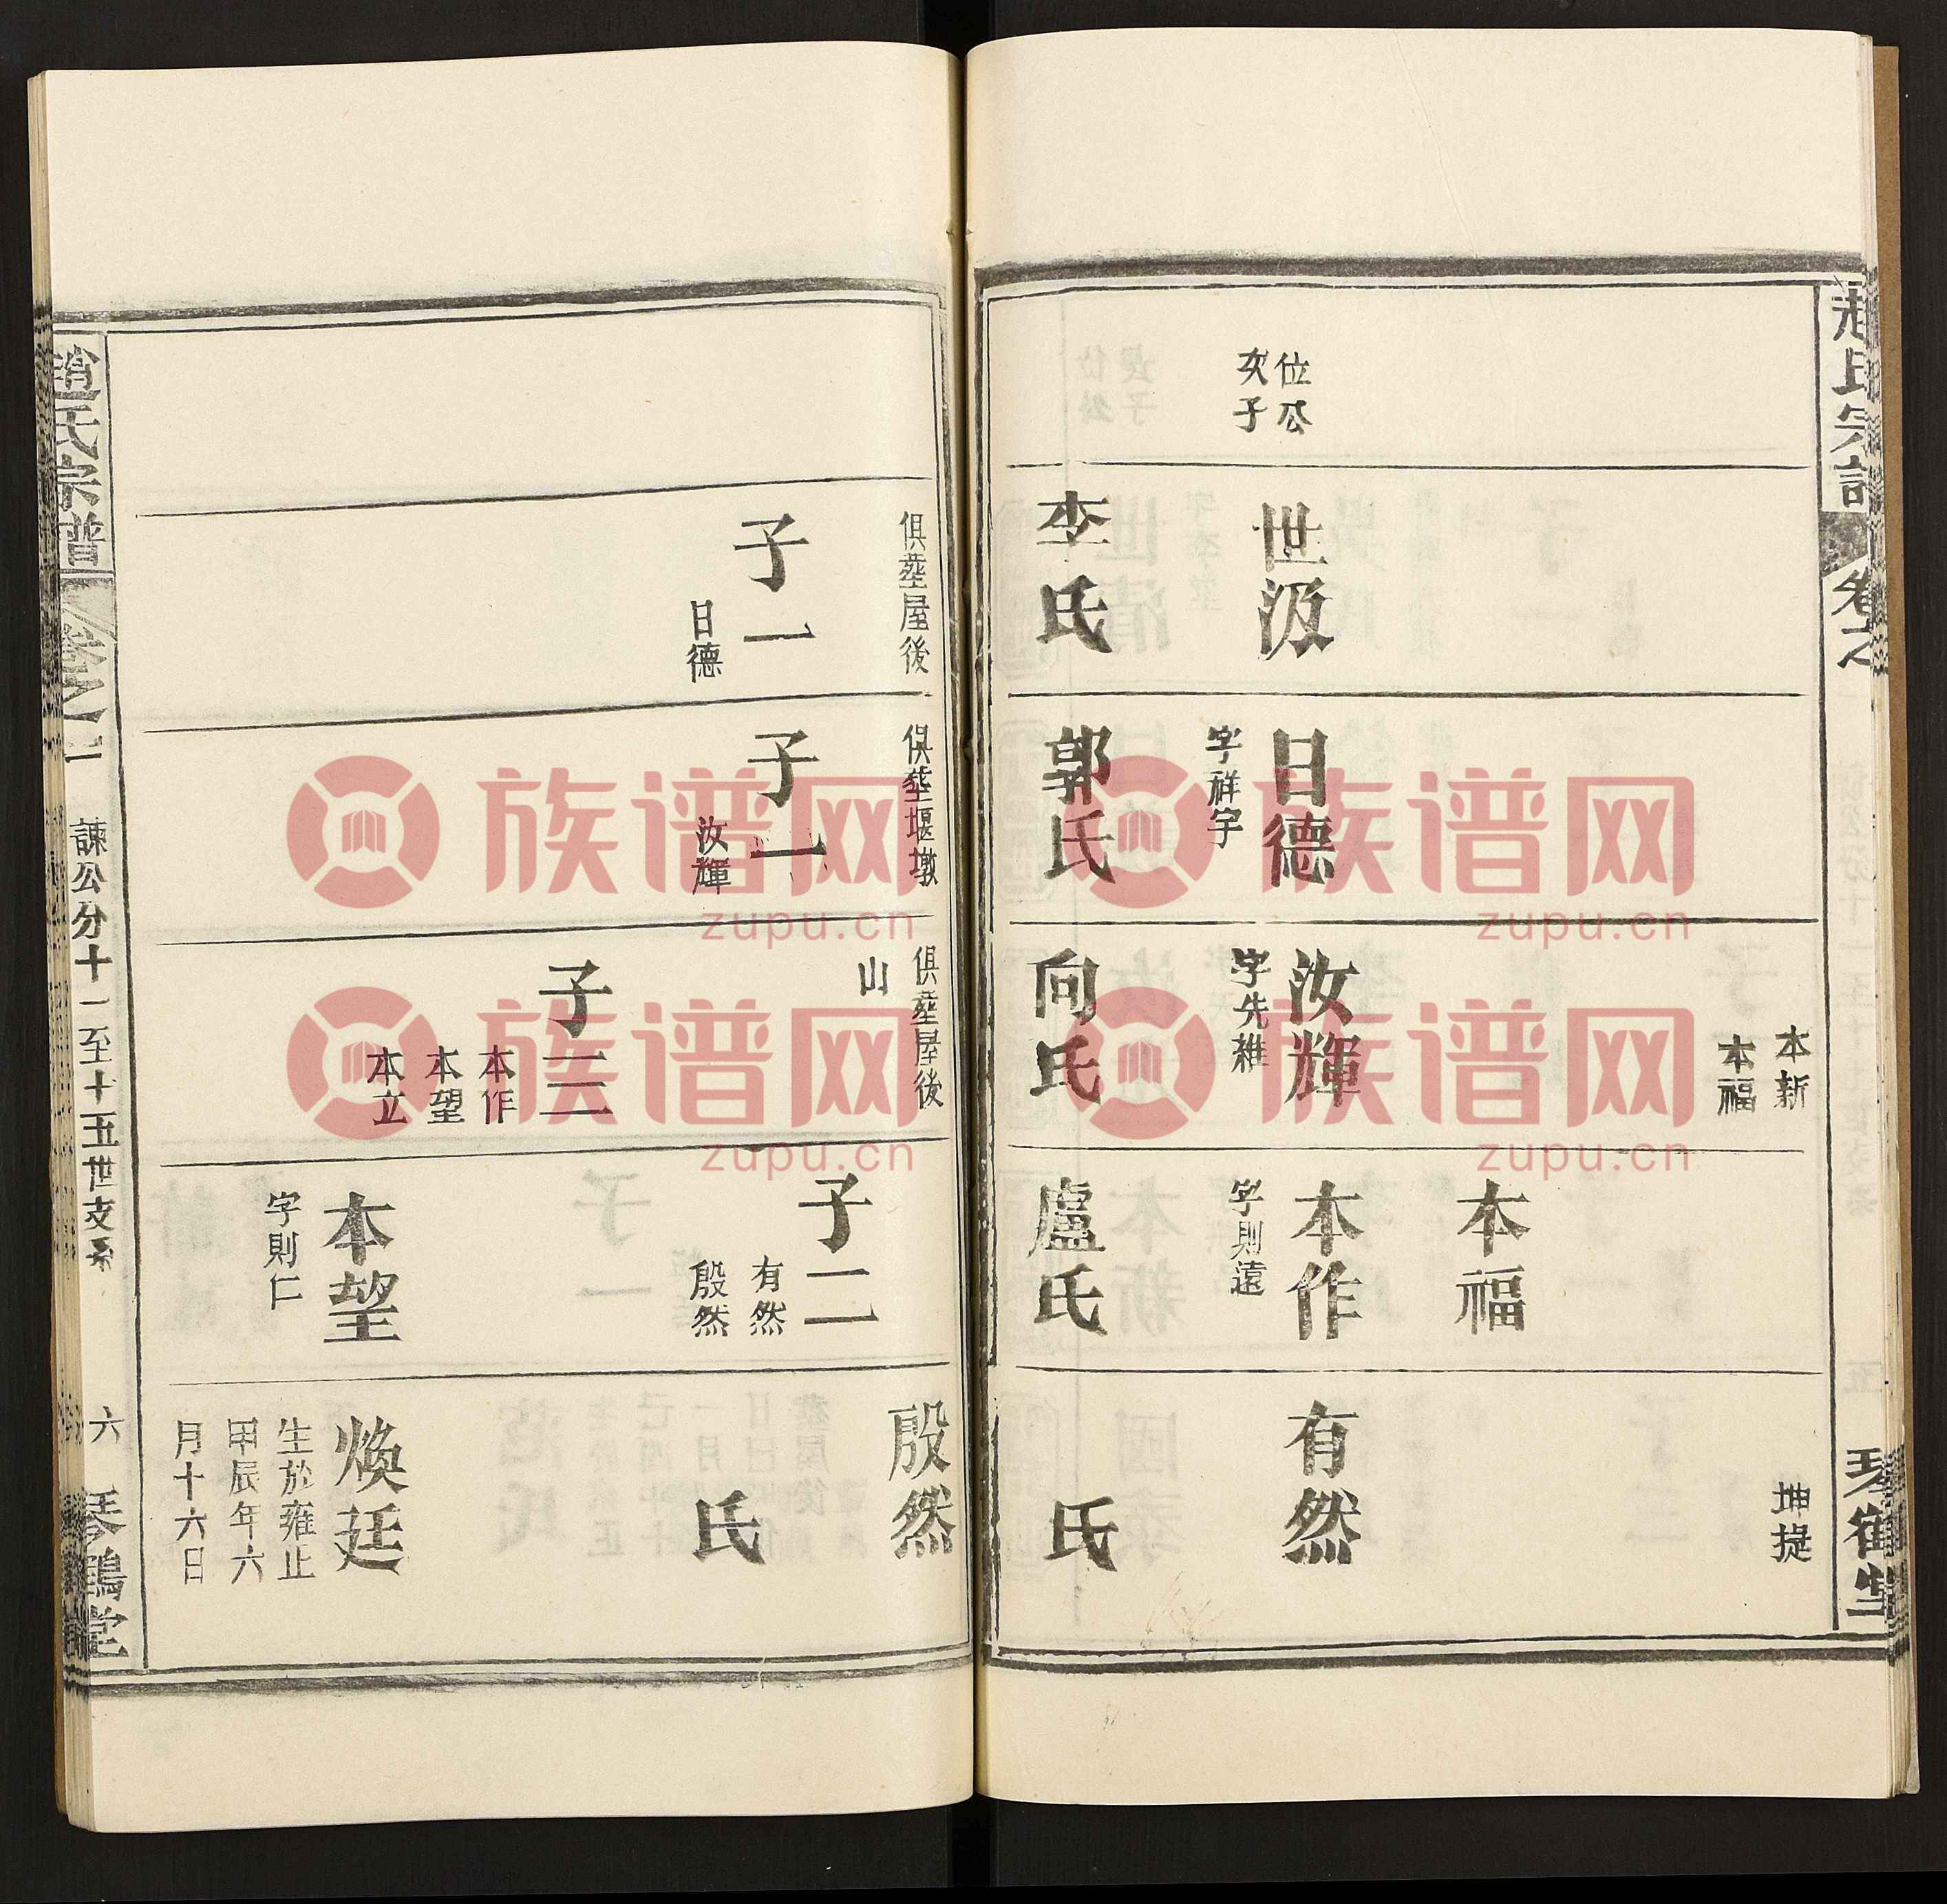 趙氏宗譜
卷之
琴鶴堂
位公
次子
世汲
李氏
日德
字祥宇
郭氏
本新
本福
汝輝
字先維
向氏
本福
本作
字則遠
盧氏
坤提
有然
氏
俱塟屋後
子一
日德
俱塟堰墩
子一
汝輝
俱塟屋後
山
子三
本作
本望
本立
子二
有然
殷然
本望
字則仁
殷然
氏
煥廷
生於雍正
甲辰年六
月十六日
趙氏宗譜
卷之一
諫公分十一至十五世支系
六
琴鶴堂
族谱网
zupu.cn
族谱网
zupu.cn
族谱网
zupu.cn
族谱网
zupu.cn